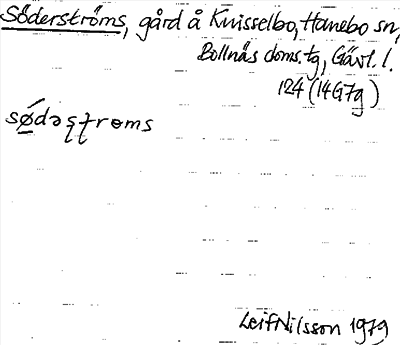 Söderströms, gård å Knisselbo, Hanebo sn,
Bollnäs doms.tg, Gävl. l.
124 (14G7g)
sǿ̱dəşţrɵms
Leif Nilsson 1979